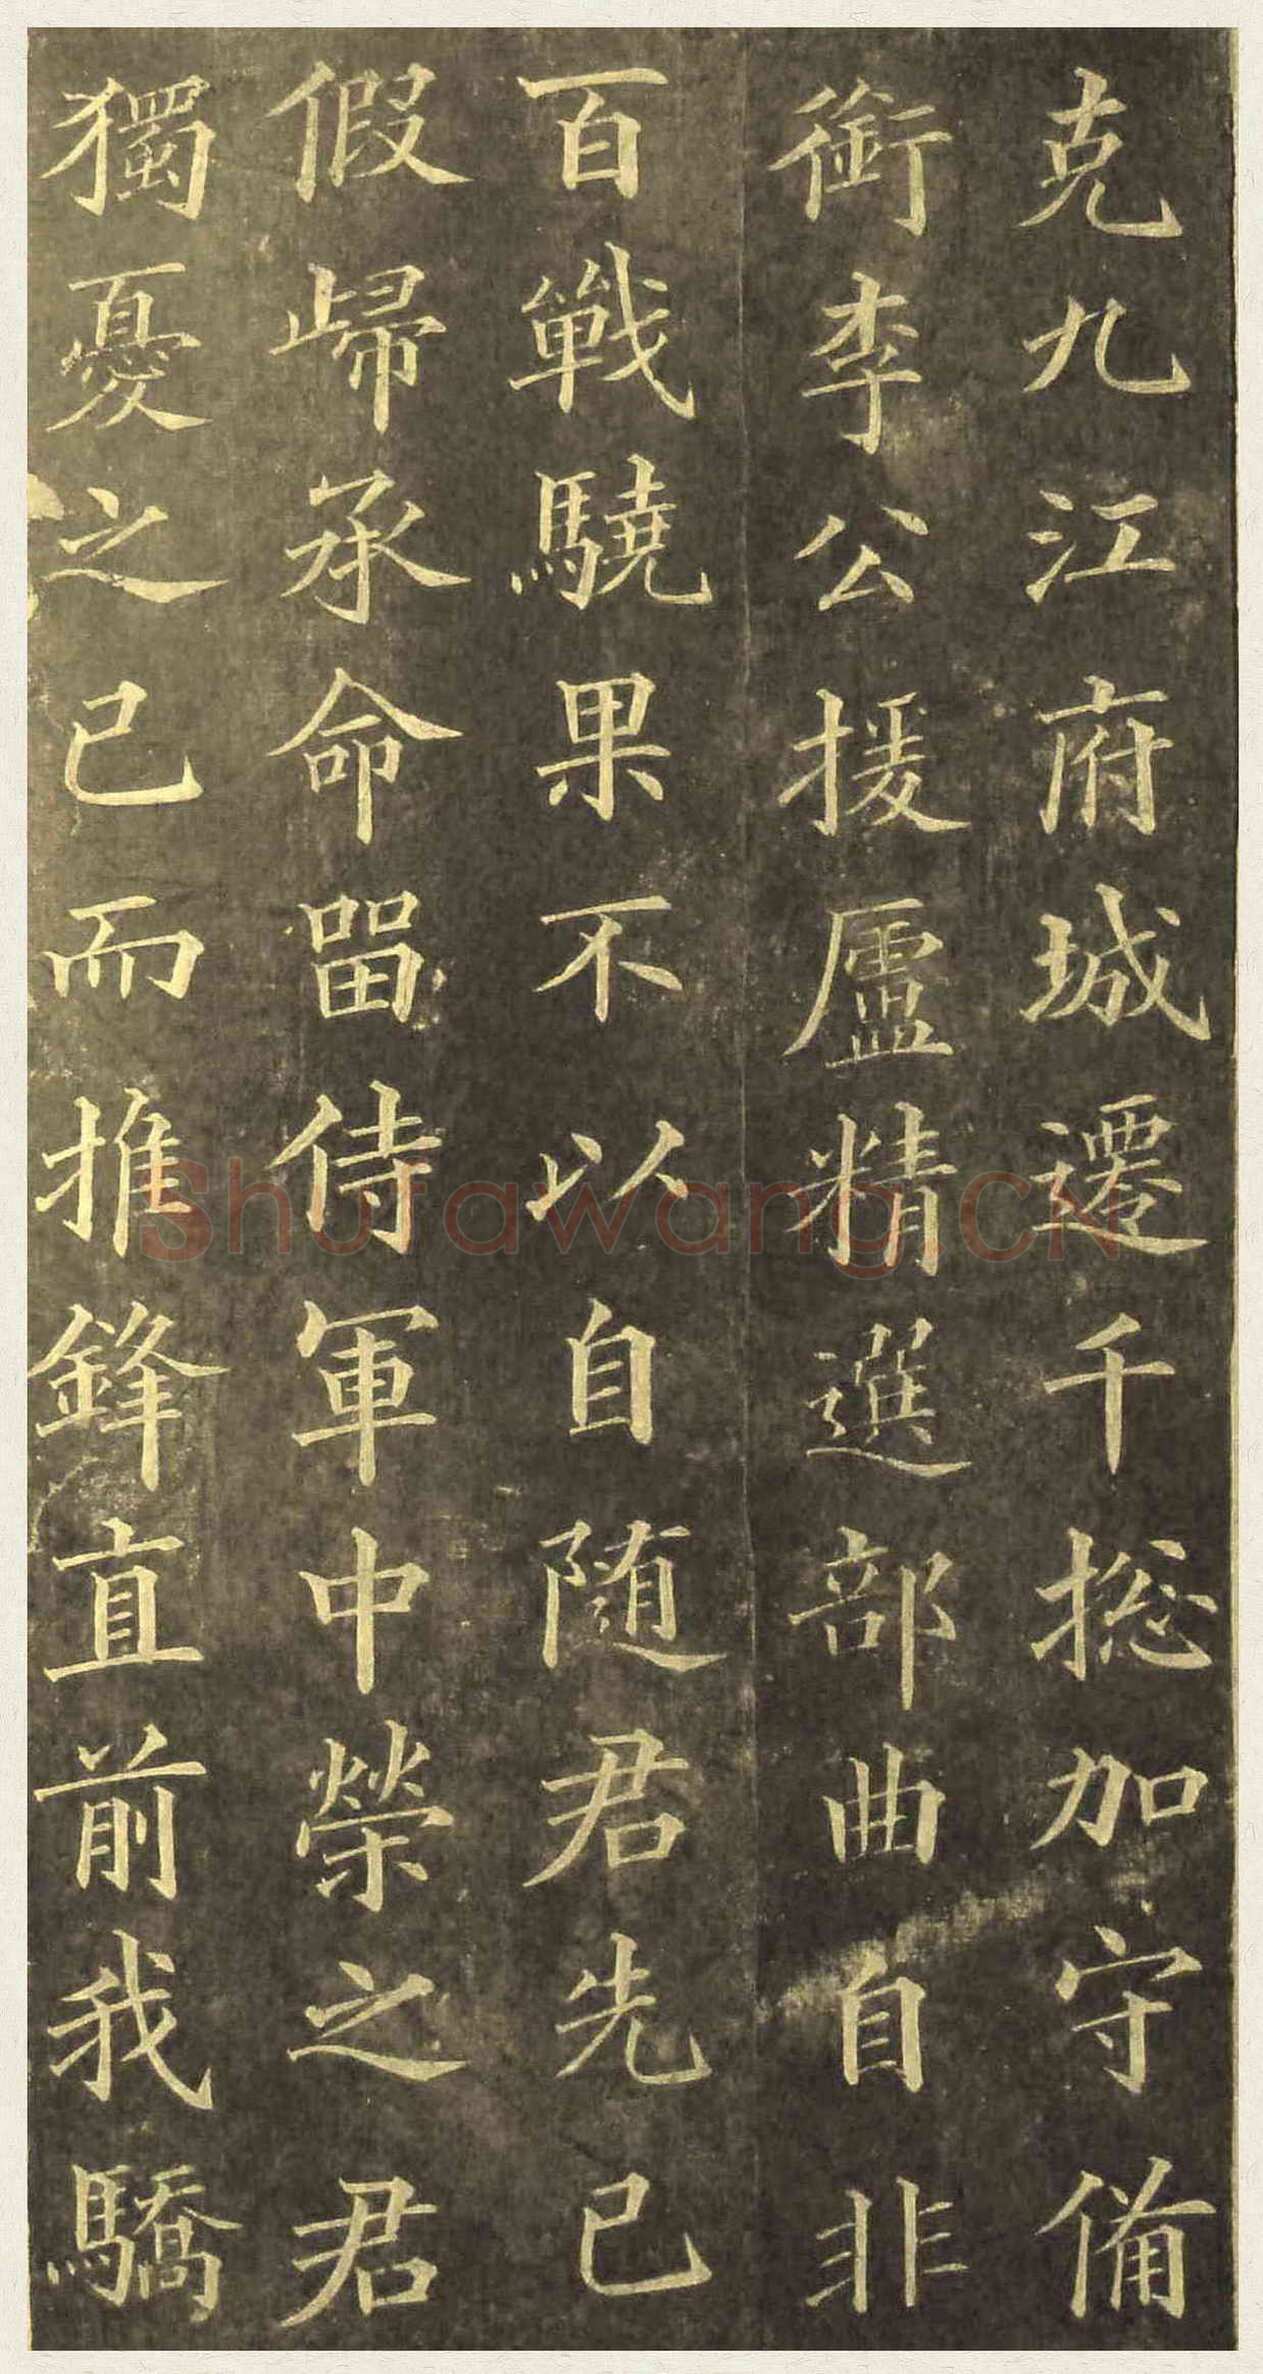 克九江府城遷千摠加守備
銜李公援廬精選部曲自非
百戰驍果不以自随君先已
假歸承命留侍軍中榮之君
獨憂之已而推鋒直前我驕
Shufawang.CN